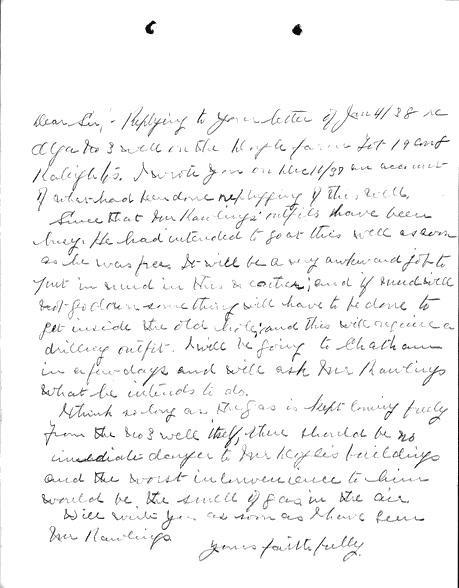 Dear Sir, - Replying to your letter of Jan 4/38 re
Gas No 3 well on the farm Lot 19 and
Raleigh Tp. I wrote you on Dec 10/37 an account
of what had been done re plugging of this well.
Since that Mr Rawlings' outfits have been
busy. He had intended to go at this well as soon
as he was free. It will be a very awkward job to
put in mud in this weather; and if mud will
not go down something will have to be done to
get inside the old hole; and this will require a
drilling outfit. I will be going to Chatham
in a few days and will ask Mr Rawlings
what he intends to do.
I think so long as the gas is kept coming freely
from the No 3 well itself there should be no
immediate danger to Mr buildings
and the worst inconvenience to him
would be the smell of gas in the air
Will write you as soon as I have seen
Mr Rawlings
Yours faithfully.